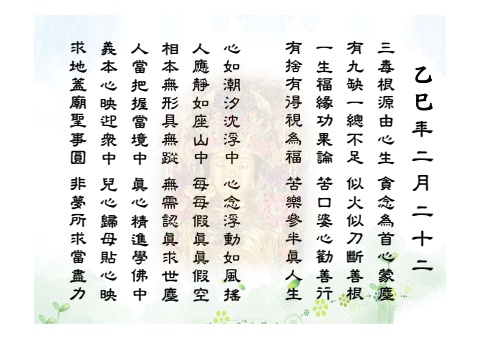 乙巳年二月二十二
三毒根源由心生 貪念為首心蒙塵
有九缺一總不足 似火似刀斷善根
一生福緣功果論 苦口婆心勸善行
有捨有得視為福 苦樂參半真人生
心如潮汐沈浮中 心念浮動如風搖
人應靜如座山中 每每假真真假空
相本無形具無蹤 無需認真求世塵
人當把握當境中 真心精進學佛中
義本心映迎眾中 兒心歸母貼心映
求地蓋廟聖事圓 非夢所求當盡力